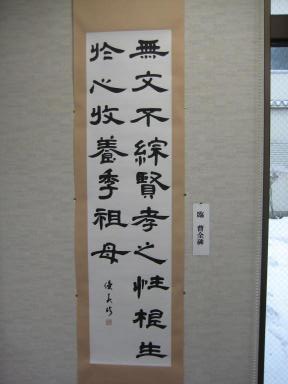 無文不綜賢孝之性根生
於心收養季祖母
臨 曹全碑